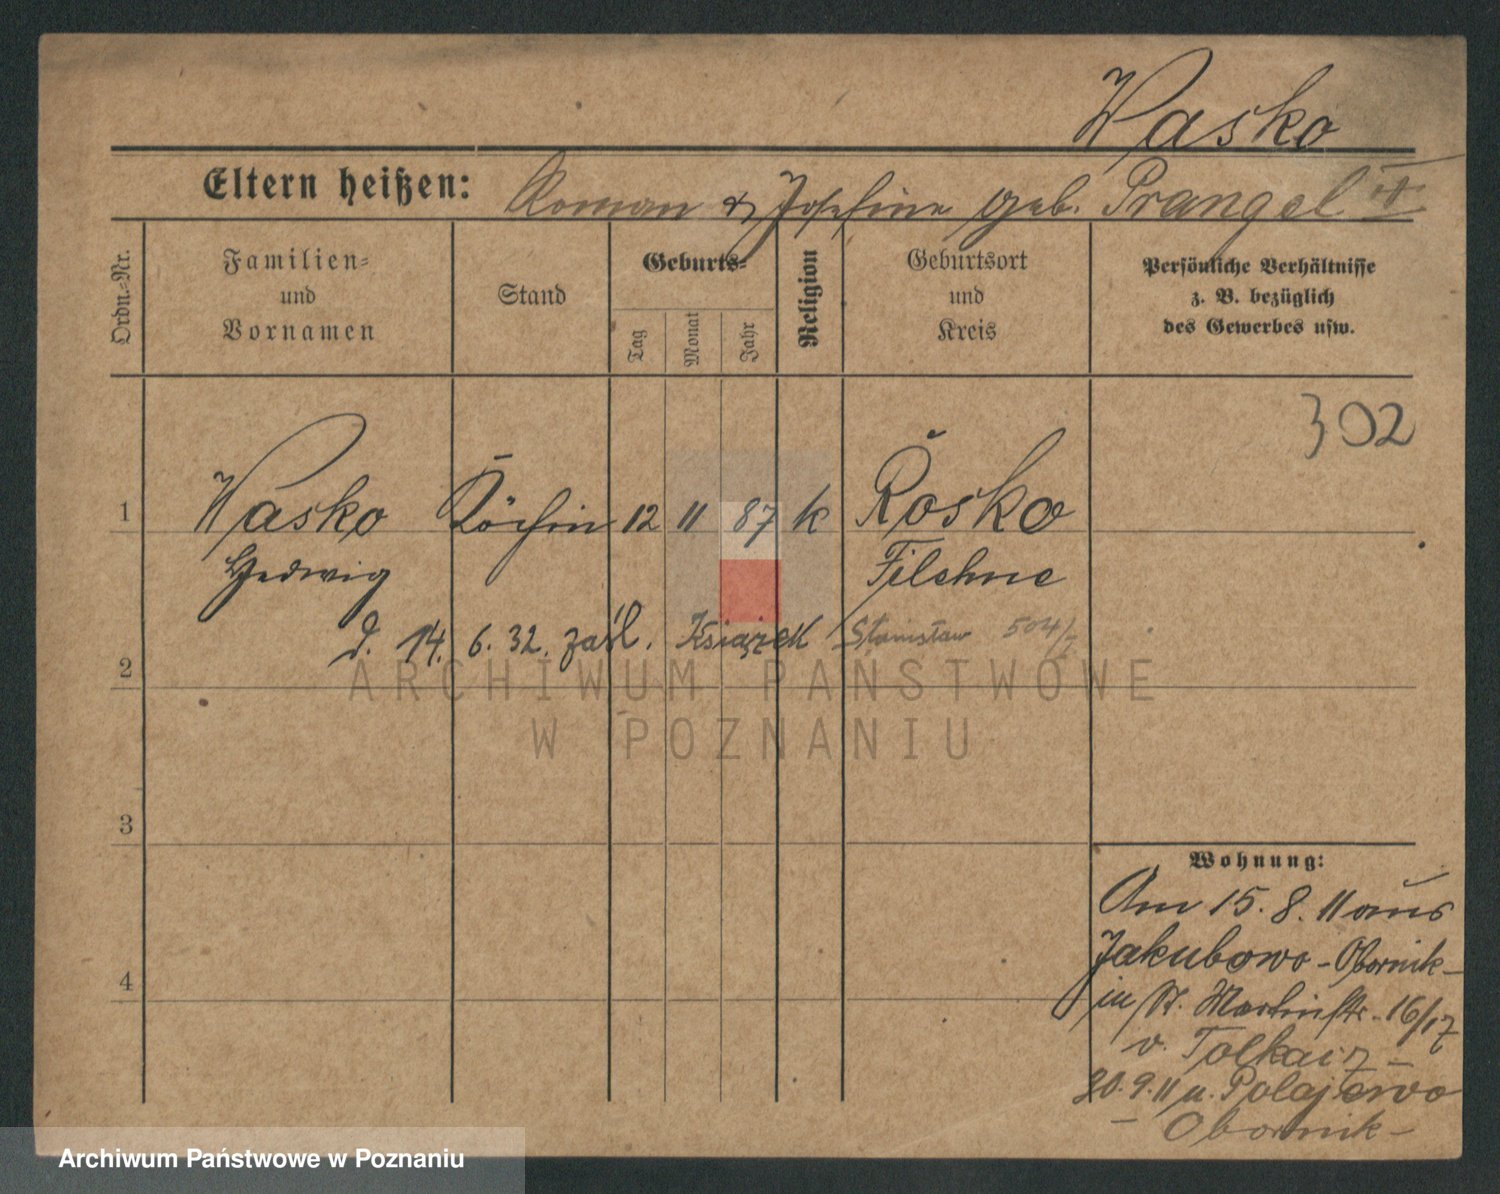 Wasko
Eltern heißen: Roman & Josefine geb. Prangel
Ordn.-Nr.
Familien-
und
Vornamen
Stand
Geburts-
Tag
Monat
Jahr
Religion
Geburtsort
und
Kreis
Persönliche Verhältnisse
z. B. bezüglich
des Gewerbes usw.
302
1 Wasko Köchin 12 11 87 k Rosko
Hedwig Filehne
d. 14. 6. 32. zaśl. Książek Stanisław 504/
2
ARCHIWUM PAŃSTWOWE
W POZNANIU
3
Wohnung:
Am 15. 8. 11 aus
Jakubowo - Obornik -
in St. Martinstr. 16/17
4
v. Tolkacz -
30. 9. 11 n. Polajewo
- Obornik -
Archiwum Państwowe w Poznaniu